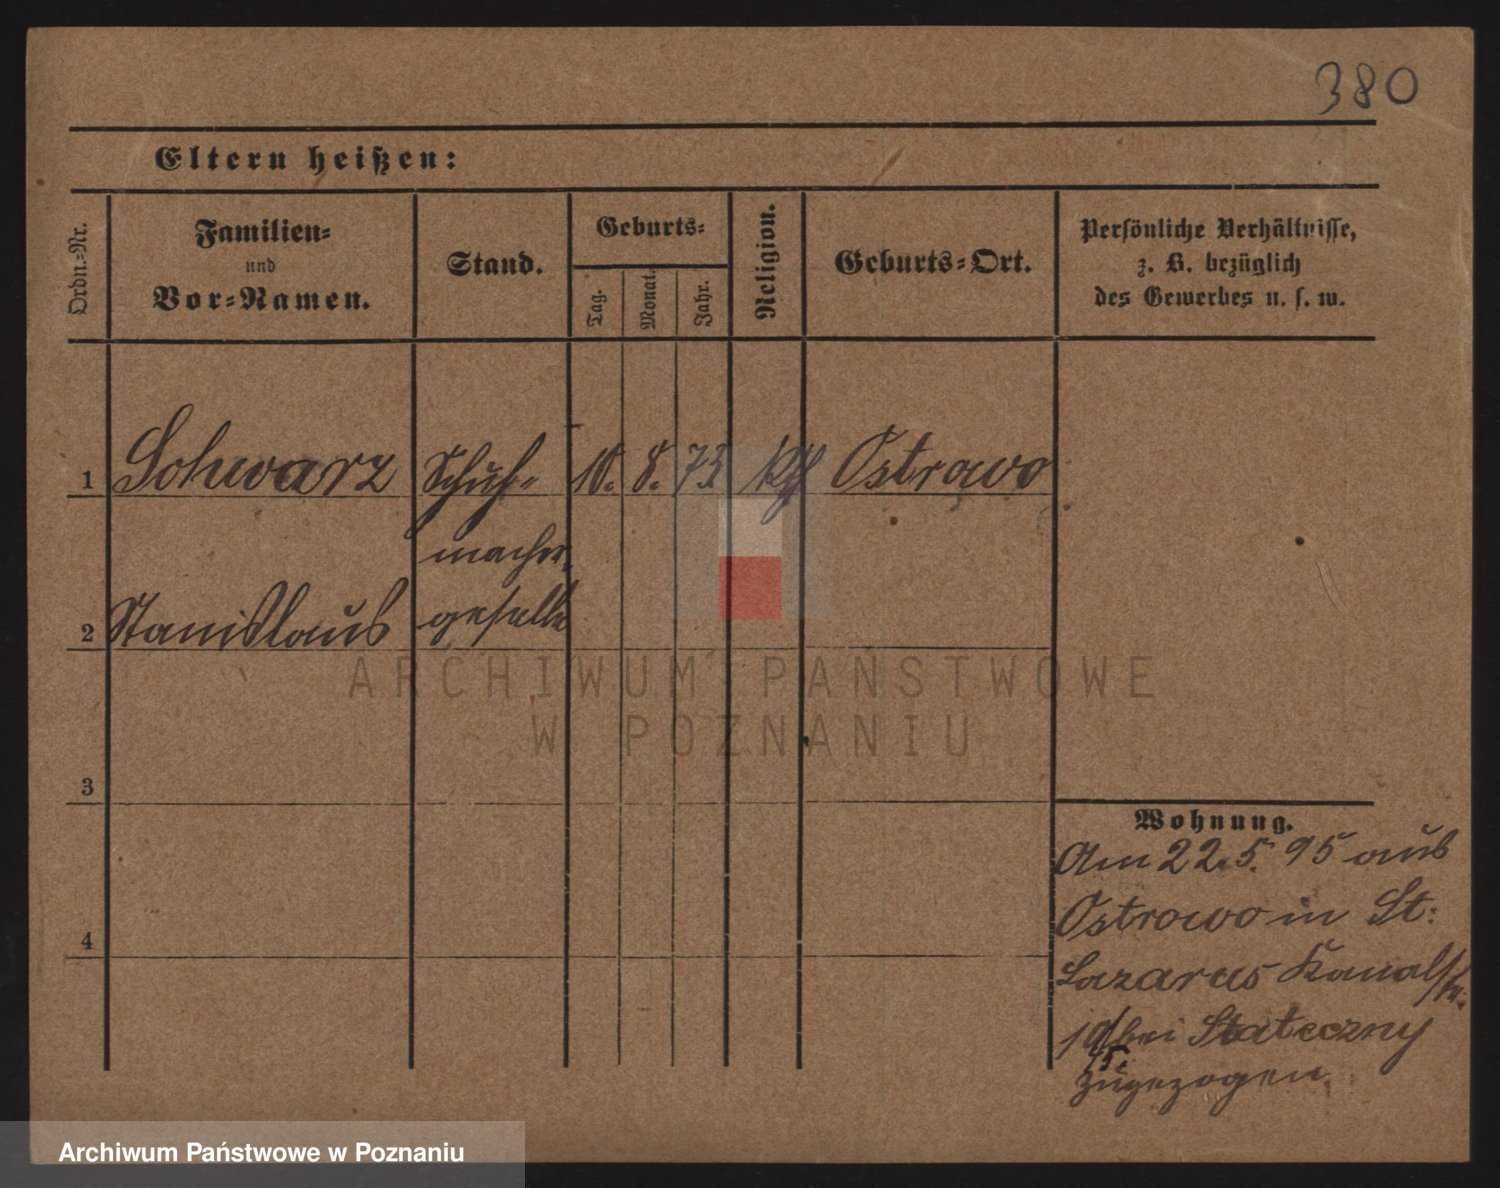 380
Eltern heißen:
Ordn.=Nr.
Familien=
und
Vor=Namen.
Stand.
Geburts=
Tag.
Monat.
Jahr.
Religion.
Geburts=Ort.
Persönliche Verhältnisse,
z. B. bezüglich
des Gewerbes u. s. w.
1 Schwarz Schuh= 10. 8. 73 kth Ostrowo
macher,
2 Stanislaus geselle
ARCHIWUM PAŃSTWOWE
W POZNANIU
3
Wohnung.
Am 22.5.95 aus
Ostrowo in St:
4
Lazarus Kanalstr.
bei Stateczny
zugezogen.
Archiwum Państwowe w Poznaniu